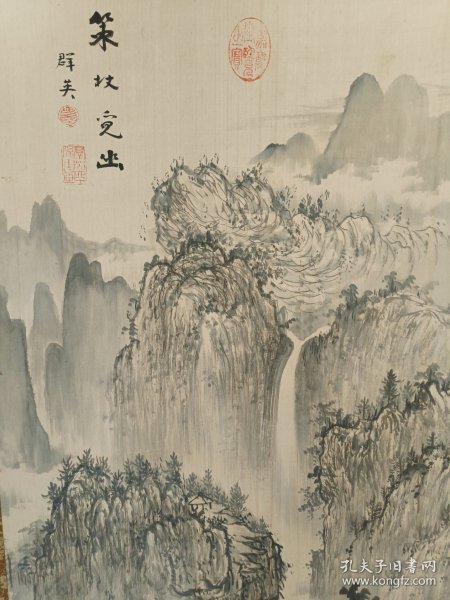 策杖覓幽
群英
孔夫子旧书网
www.kongfz.com